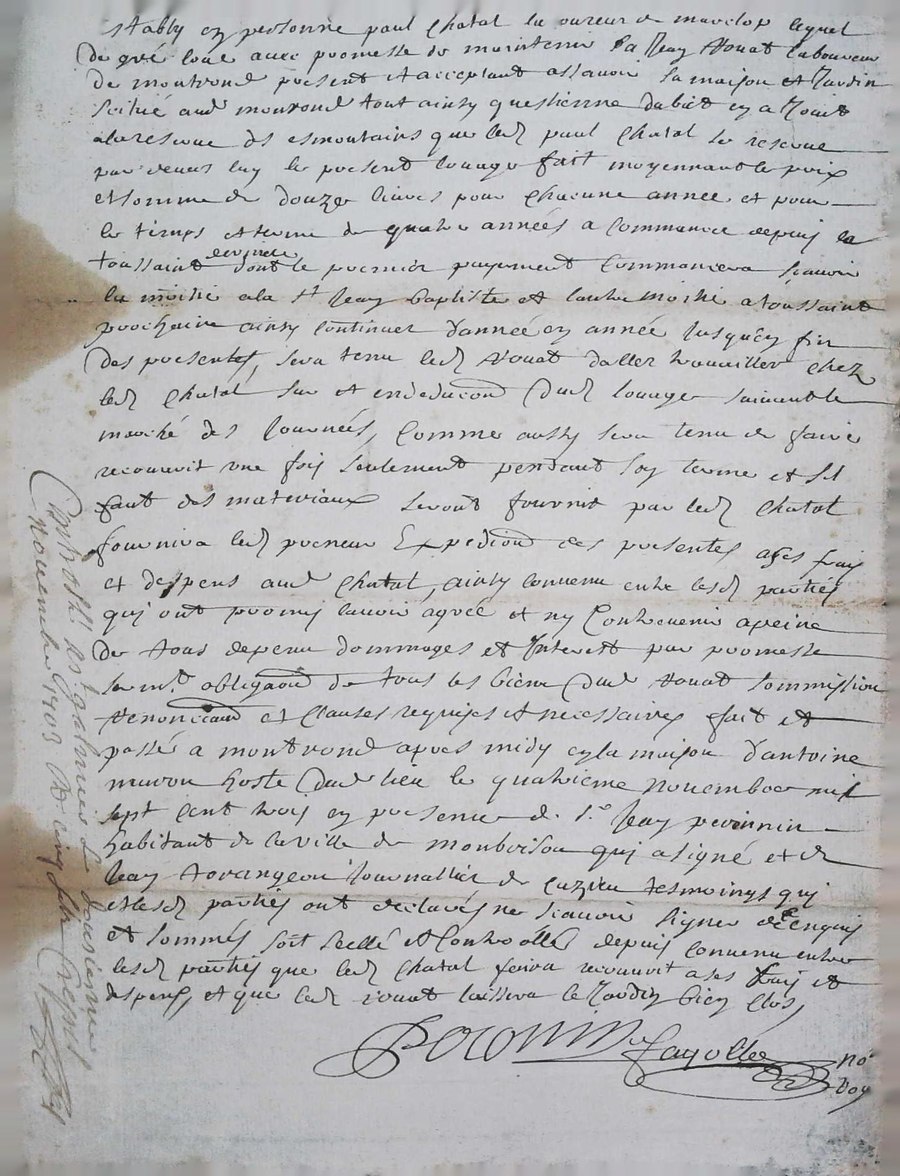 stably en personne paul Chatal laboureur de marclop lequel
de gré loue avec promesse de maintenir a Jean Rouat laboureur
de montrond present et acceptant assavoir sa maison et Jardin
scitué aud monrond tout ainsy questienne dabiet en a Jouit
alareserve des esmoutains que led paul Chatal se reserve
par devers luy le present louage fait moyennant le prix
et somme de douze livres pour chacune année et pour
le temps et terme de quatre années a commancer depuis la
toussaint derniere dont le premier payement commancera scavoir
la moitié a la St Jean baptiste et lautre moitié a toussaint
prochaine ainsy continuer dannée en année Jusquen fin
des presentes, sera tenu led Rouat daller travailler chez
led Chatal sur et endeducõn dud louage suivant le
marché des Journées, comme aussy sera tenu de faire
recouvrir une fois seulement pendant son terme et sil
faut des materiaux seront fournis par led Chatal
fournira led preneur Expediõn des presentes a ses frais
et despens aud Chatal, ainsy convenu entre lesd parties
qui ont promis lavoir agreé et ny contrevenir a peine
de tous depens dommages et Interest par promesse
serm.t obligaõn de tous les biens dud Rouat sommission
renonciaõn et clauses requises et necessaires fait et
passé a montrond apres midy en la maison dantoine
maron hoste dud lieu le quatrieme novembre mil
sept cent trois en presence de Sr Jean peronnin
habitant de la ville de montbrison qui a signé et de
Jean torangeon Journallier de cuzieu tesmoings qui
et lesd parties ont declarés ne scavoir signer de ce enquis
et sommés soit scellé et controollé depuis convenu entre
lesd parties que led Chatal fera recouvrir a ses frais et
despens, et que led rouat laissera le Jardin bien clos,
Peronnin
fayolle no.re
Roy
Controllé a St galmier le dousieme
novembre 1703 R cinq sols